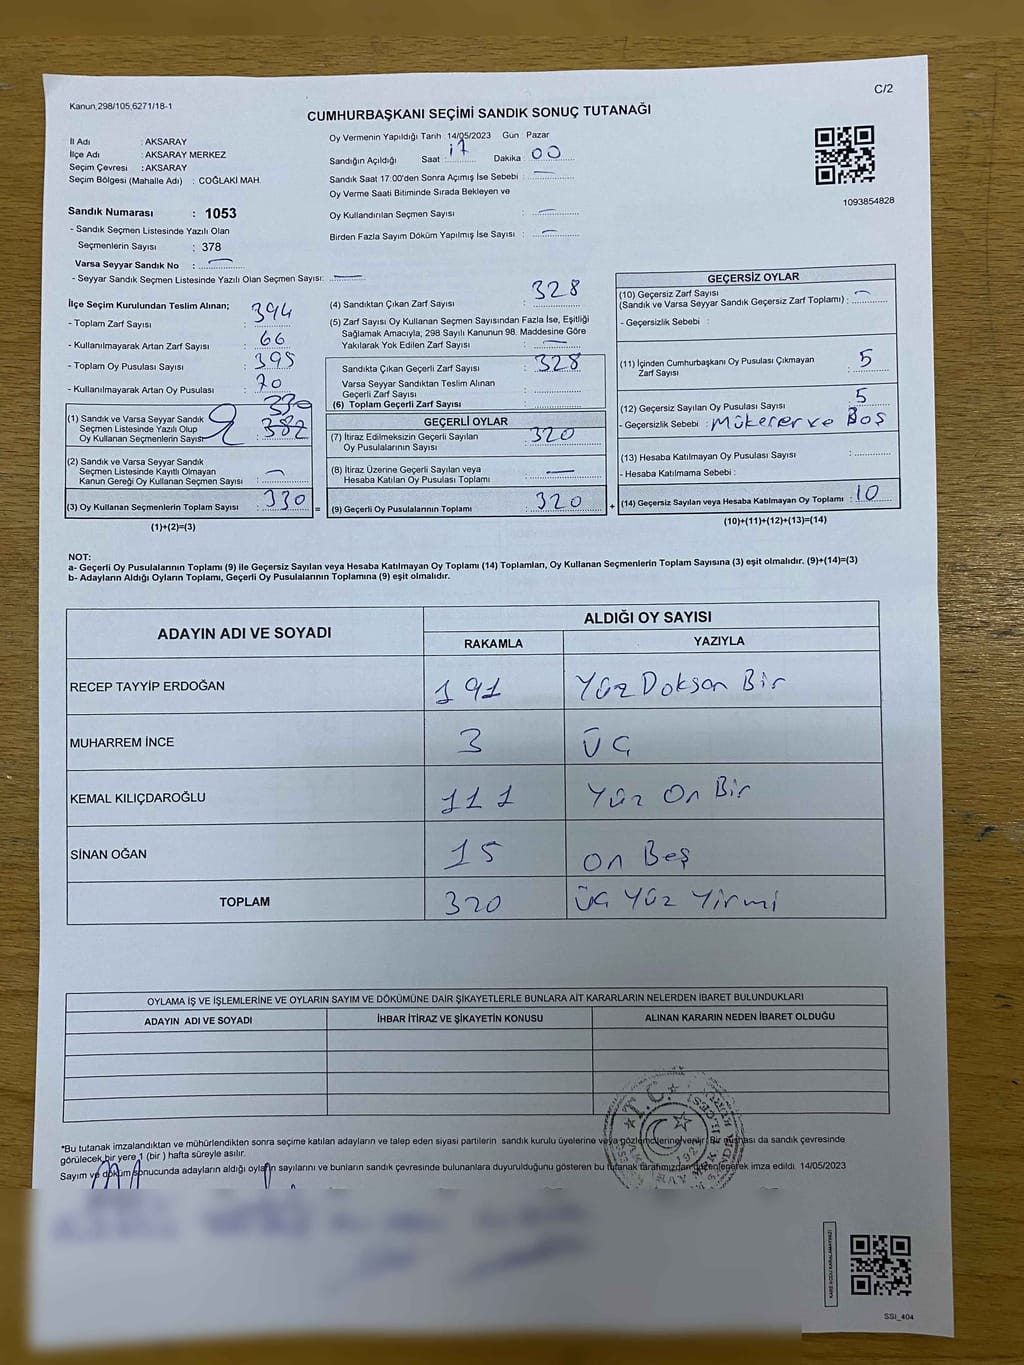 Kanun,298/105,6271/18-1
C/2
CUMHURBAŞKANI SEÇİMİ SANDIK SONUÇ TUTANAĞI
İl Adı : AKSARAY
İlçe Adı : AKSARAY MERKEZ
Seçim Çevresi : AKSARAY
Seçim Bölgesi (Mahalle Adı) : COĞLAKİ MAH.
Sandık Numarası : 1053
- Sandık Seçmen Listesinde Yazılı Olan
Seçmenlerin Sayısı : 378
Varsa Seyyar Sandık No :
- Seyyar Sandık Seçmen Listesinde Yazılı Olan Seçmen Sayısı:
Oy Vermenin Yapıldığı Tarih : 14/05/2023 Gün : Pazar
Sandığın Açıldığı Saat : 17 Dakika : 00
Sandık Saat 17:00'den Sonra Açımış İse Sebebi :
Oy Verme Saati Bitiminde Sırada Bekleyen ve
Oy Kullandırılan Seçmen Sayısı :
Birden Fazla Sayım Döküm Yapılmış İse Sayısı :
1093854828
İlçe Seçim Kurulundan Teslim Alınan;
- Toplam Zarf Sayısı : 394
- Kullanılmayarak Artan Zarf Sayısı : 66
- Toplam Oy Pusulası Sayısı : 395
- Kullanılmayarak Artan Oy Pusulası : 70
330
(1) Sandık ve Varsa Seyyar Sandık
Seçmen Listesinde Yazılı Olup
Oy Kullanan Seçmenlerin Sayısı :
(2) Sandık ve Varsa Seyyar Sandık
Seçmen Listesinde Kayıtlı Olmayan
Kanun Gereği Oy Kullanan Seçmen Sayısı :
(3) Oy Kullanan Seçmenlerin Toplam Sayısı : 330
(1)+(2)=(3)
(4) Sandıktan Çıkan Zarf Sayısı : 328
(5) Zarf Sayısı Oy Kullanan Seçmen Sayısından Fazla İse, Eşitliği
Sağlamak Amacıyla, 298 Sayılı Kanunun 98. Maddesine Göre
Yakılarak Yok Edilen Zarf Sayısı :
Sandıkta Çıkan Geçerli Zarf Sayısı : 328
Varsa Seyyar Sandıktan Teslim Alınan
Geçerli Zarf Sayısı :
(6) Toplam Geçerli Zarf Sayısı :
GEÇERLİ OYLAR
(7) İtiraz Edilmeksizin Geçerli Sayılan
Oy Pusulalarının Sayısı : 320
(8) İtiraz Üzerine Geçerli Sayılan veya
Hesaba Katılan Oy Pusulası Toplamı :
= (9) Geçerli Oy Pusulalarının Toplamı : 320 +
GEÇERSİZ OYLAR
(10) Geçersiz Zarf Sayısı
(Sandık ve Varsa Seyyar Sandık Geçersiz Zarf Toplamı) :
- Geçersizlik Sebebi :
(11) İçinden Cumhurbaşkanı Oy Pusulası Çıkmayan
Zarf Sayısı : 5
(12) Geçersiz Sayılan Oy Pusulası Sayısı : 5
- Geçersizlik Sebebi : Mükerer ve Boş
(13) Hesaba Katılmayan Oy Pusulası Sayısı :
- Hesaba Katılmama Sebebi :
(14) Geçersiz Sayılan veya Hesaba Katılmayan Oy Toplamı : 10
(10)+(11)+(12)+(13)=(14)
NOT:
a- Geçerli Oy Pusulalarının Toplamı (9) ile Geçersiz Sayılan veya Hesaba Katılmayan Oy Toplamı (14) Toplamları, Oy Kullanan Seçmenlerin Toplam Sayısına (3) eşit olmalıdır. (9)+(14)=(3)
b- Adayların Aldığı Oyların Toplamı, Geçerli Oy Pusulalarının Toplamına (9) eşit olmalıdır.
ADAYIN ADI VE SOYADI
ALDIĞI OY SAYISI
RAKAMLA YAZIYLA
RECEP TAYYİP ERDOĞAN 191 Yüz Doksan Bir
MUHARREM İNCE 3 ÜÇ
KEMAL KILIÇDAROĞLU 111 Yüz On Bir
SİNAN OĞAN 15 On Beş
TOPLAM 320 Üç Yüz Yirmi
OYLAMA İŞ VE İŞLEMLERİNE VE OYLARIN SAYIM VE DÖKÜMÜNE DAİR ŞİKAYETLERLE BUNLARA AİT KARARLARIN NELERDEN İBARET BULUNDUKLARI
ADAYIN ADI VE SOYADI İHBAR İTİRAZ VE ŞİKAYETİN KONUSU ALINAN KARARIN NEDEN İBARET OLDUĞU
T.C.
*Bu tutanak imzalandıktan ve mühürlendikten sonra seçime katılan adayların ve talep eden siyasi partilerin sandık kurulu üyelerine veya gözlemcilerine verilir. Bir nüshası da sandık çevresinde
görülecek bir yere 1 (bir ) hafta süreyle asılır.
Sayım ve döküm sonucunda adayların aldığı oyların sayılarını ve bunların sandık çevresinde bulunanlara duyurulduğunu gösteren bu tutanak tarafımızdan düzenlenerek imza edildi. 14/05/2023
KARE KODU KARALAMAYINIZ!
SSI_404